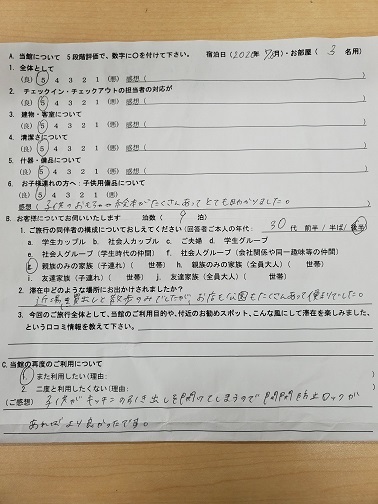 A. 当館について 5段階評価で、数字に〇を付けて下さい。 宿泊日(2020年 月)・お部屋( 3 名用)
1. 全体として
(良) 5 4 3 2 1 (悪) 感想(
2. チェックイン・チェックアウトの担当者の対応が
(良) 5 4 3 2 1 (悪) 感想(
3. 建物・客室について
(良) 5 4 3 2 1 (悪) 感想(
4. 清潔さについて
(良) 5 4 3 2 1 (悪) 感想(
5. 什器・備品について
(良) 5 4 3 2 1 (悪) 感想(
6. お子様連れの方へ:子供用備品について
(良) 5 4 3 2 1 (悪)
感想( 子供のおもちゃや絵本がたくさんあってとても助かりました。 )
B. お客様についてお伺いいたします 泊数( 9 泊)
1. ご旅行の同伴者の構成についておしえてください(回答者ご本人の年代: 30 代 前半 / 半ば / 後半
a. 学生カップル b. 社会人カップル c. ご夫婦 d. 学生グループ
e. 社会人グループ(学生時代の仲間) f. 社会人グループ(会社関係や同一趣味等の仲間)
g. 親族のみの家族(子連れ)( 世帯) h. 親族のみの家族(全員大人)( 世帯)
i. 友達家族(子連れ)( 世帯) j. 友達家族(全員大人)( 世帯)
2. 滞在中どのような場所にお出かけされましたか?
近場で買出しと散歩のみでしたが、お店も公園もたくさんあって便利でした。
3. 今回のご旅行全体として、当館のご利用目的や、付近のお勧めスポット、こんな風にして滞在を楽しみました、
という口コミ情報を教えて下さい。
C. 当館の再度のご利用について
1. また利用したい(理由: )
2. 二度と利用したくない(理由: )
(ご感想) 子供がキッチンの引き出しを開けてしまうので開閉防止ロックが
あればより良かったです。